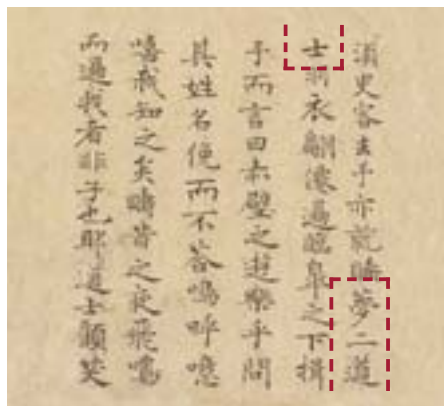 須臾客去予亦就睡夢二道
士羽衣翩僊過臨皋之下揖
予而言曰赤壁之遊樂乎問
其姓名俛而不答嗚呼噫
嘻我知之矣疇昔之夜飛鳴
而過我者非子也耶道士顧笑